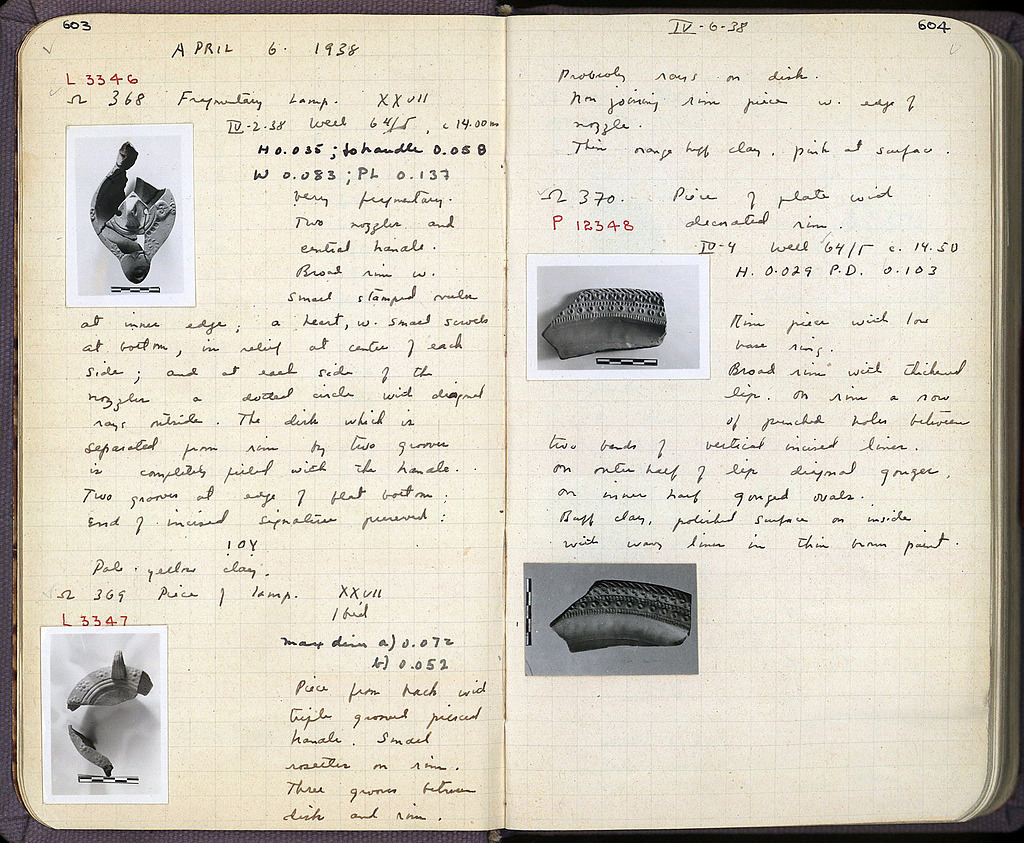 603
APRIL 6. 1938
L 3346
Ω 368 Fragmentary Lamp. XXVII
IV-2-38 Well 64/Γ, c 14.00m
H 0.035; to handle 0.058
W 0.083; PL 0.137
Very fragmentary.
Two nozzles and
central handle.
Broad rim w.
small stamped ovules
at inner edge; a heart, w. small scrolls
at bottom, in relief at center of each
side; and at each side of the
nozzles a dotted circle with diagonal
rays outside. The disk which is
separated from rim by two grooves
is completely filled with the handle.
Two grooves at edge of flat bottom:
End of incised signature preserved:
ΙΟΥ
Pale yellow clay.
Ω 369 Piece of lamp. XXVII
L 3347
Ibid
max dim a) 0.072
b) 0.052
Piece from back with
triple grooved pierced
handle. Small
rosettes on rim.
Three grooves between
disk and rim.
IV-6-38
604
Probably rays on disk.
Non joining rim piece w. edge of
nozzle.
Thin orange buff clay, pink at surface.
Ω 370. Piece of plate with
P 12348 decorated rim.
IV-4 Well 64/Γ c. 14.50
H. 0.029 P.D. 0.103
Rim piece with low
base ring.
Broad rim with thickened
lip. On rim a row
of punched holes between
two bands of vertical incised lines.
On outer half of lip diagonal gouges,
on inner half gouged ovals.
Buff clay, polished surface on inside
with wavy lines in thin brown paint.